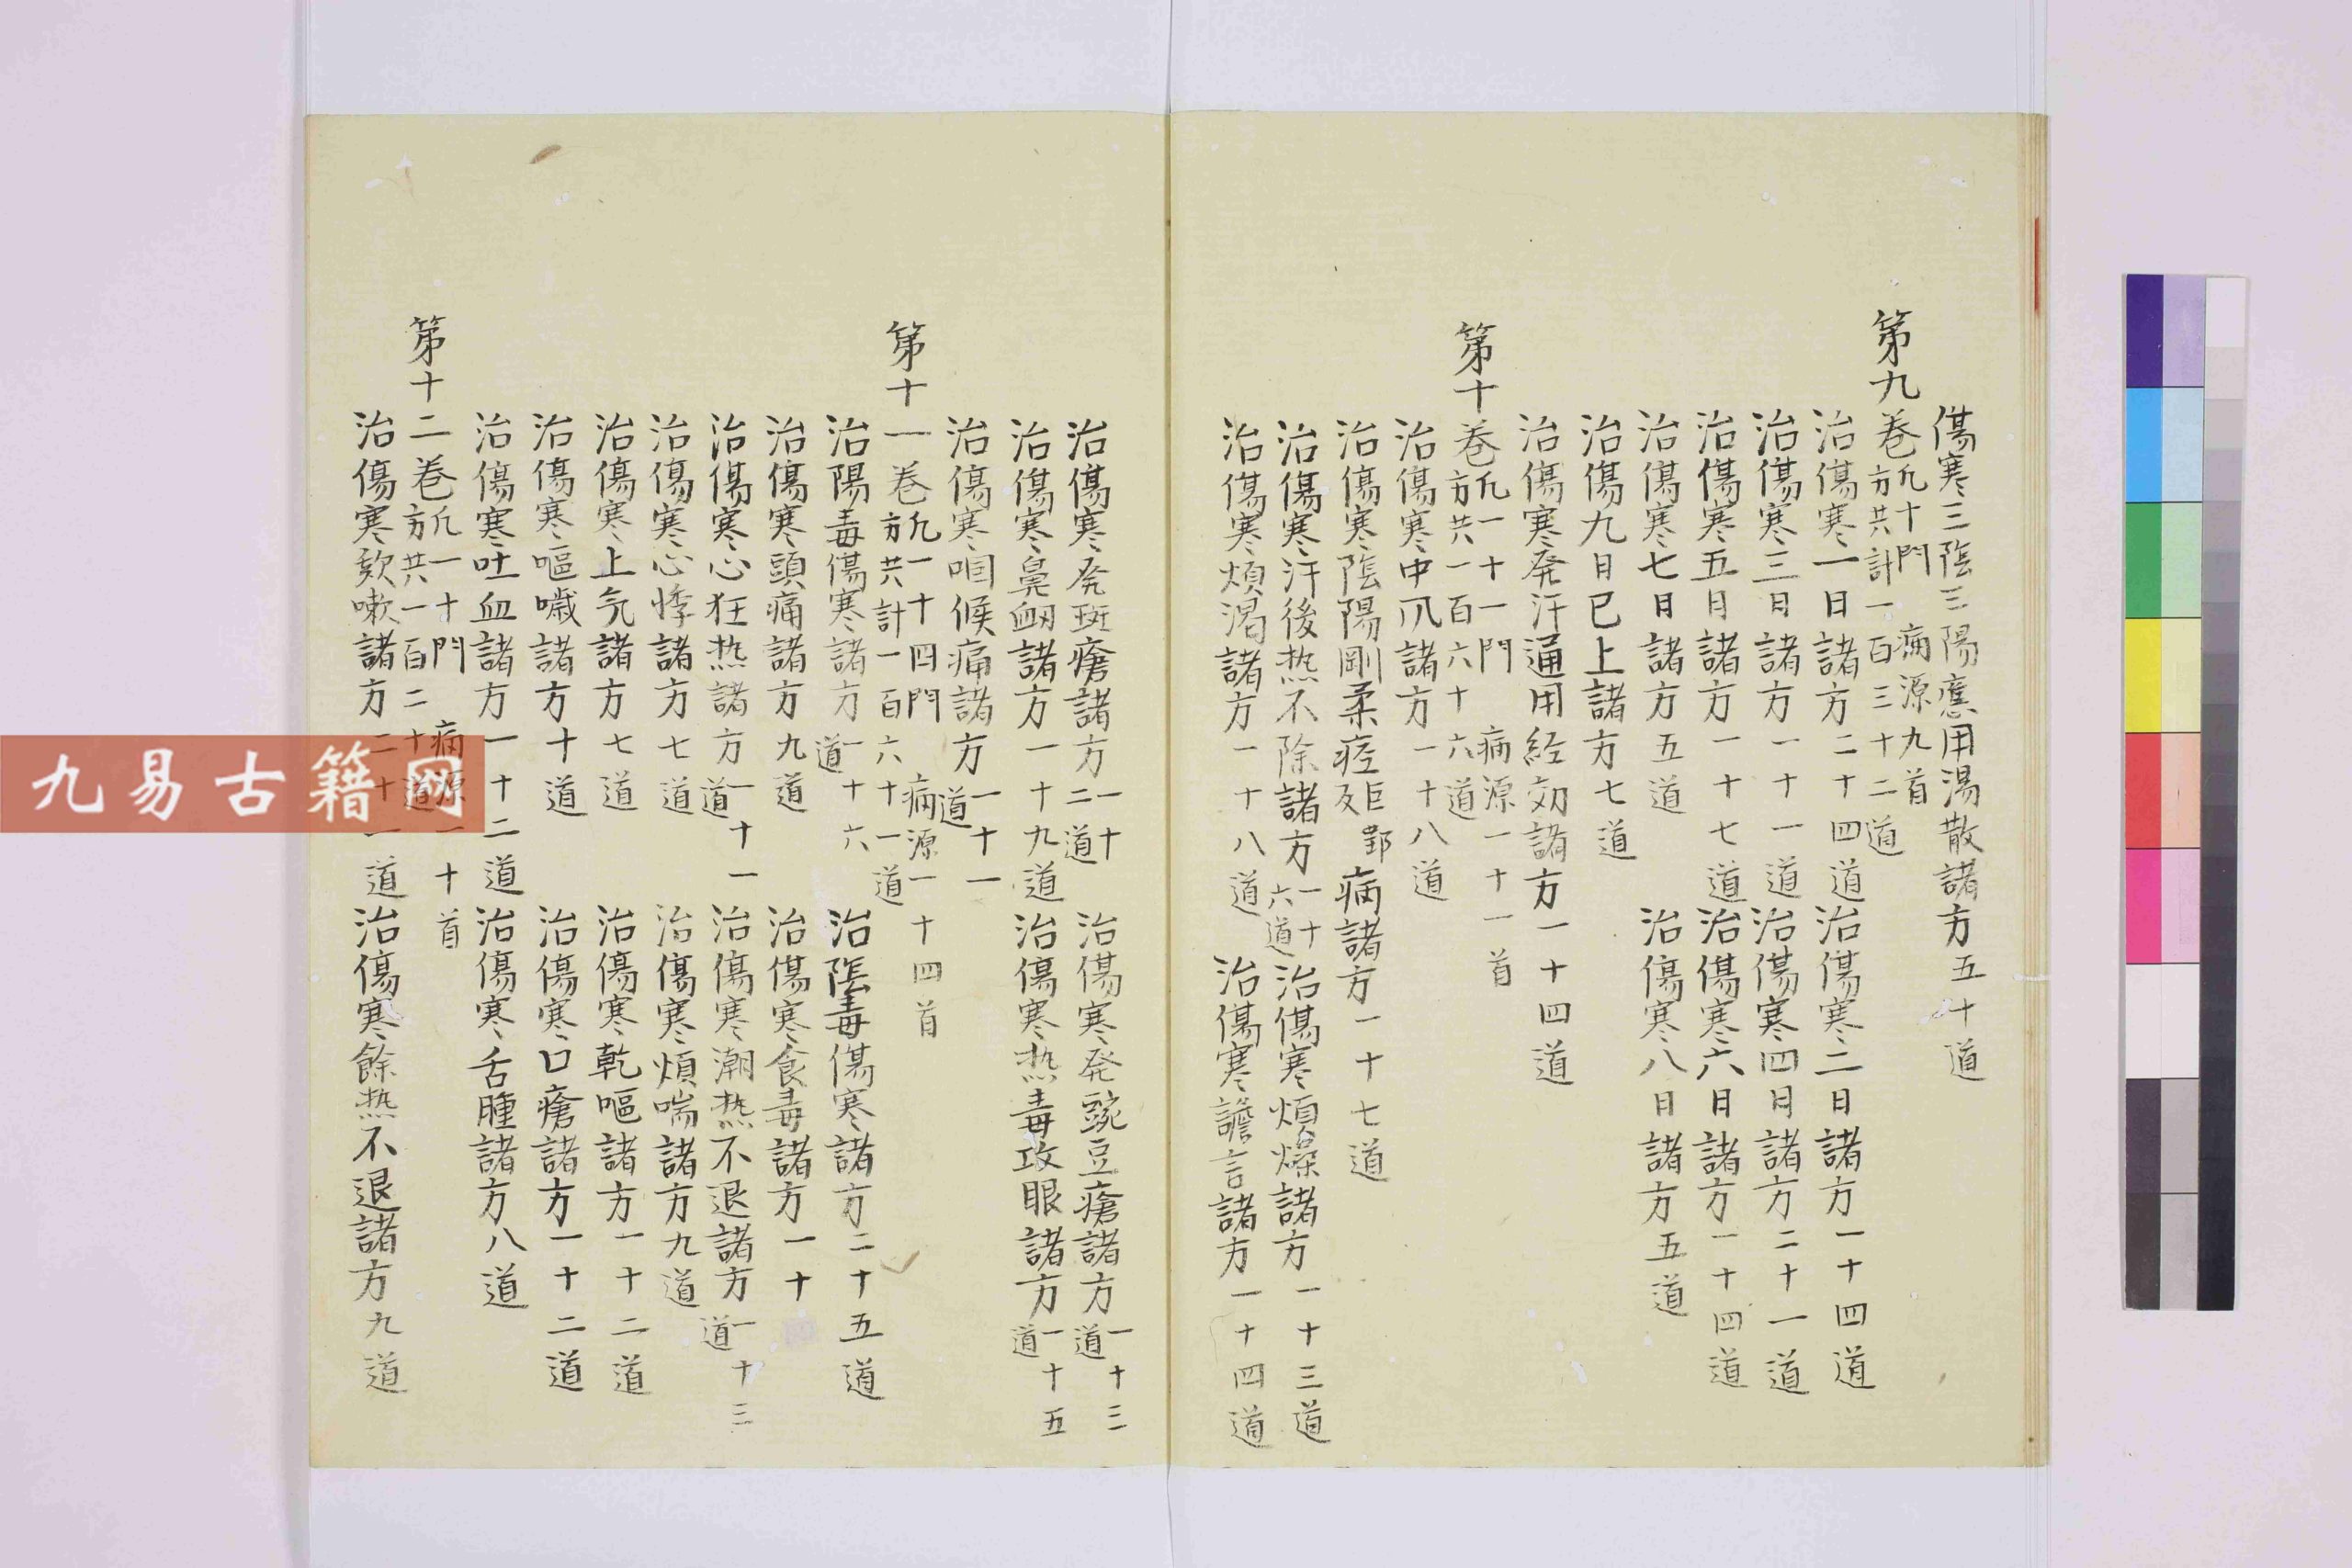 傷寒三陰三陽應用湯散諸方五十道
第九卷 凢十門 病源九首 方共計一百三十二道
治傷寒一日諸方二十四道 治傷寒二日諸方一十四道
治傷寒三日諸方一十一道 治傷寒四日諸方二十一道
治傷寒五日諸方一十七道 治傷寒六日諸方一十四道
治傷寒七日諸方五道 治傷寒八日諸方五道
治傷九日已上諸方七道
治傷寒発汗通用経効諸方一十四道
第十卷 凢一十一門 病源一十一首 方共一百六十六道
治傷寒中爪諸方一十八道
治傷寒陰陽剛柔痙 病諸方一十七道
治傷寒汗後热不除諸方一十六道 治傷寒煩燥諸方一十三道
治傷寒煩渴諸方一十八道 治傷寒譫言諸方一十四道
治傷寒発斑瘡諸方一十二道 治傷寒発豌豆瘡諸方一十三道
治傷寒鼻衂諸方一十九道 治傷寒热毒攻眼諸方一十五道
治傷寒咽候痛諸方一十一道
第十一卷 凢一十四門 病源一十四首 方共計一百六十一道
治陽毒傷寒諸方一十六道 治陰毒傷寒諸方二十五道
治傷寒頭痛諸方九道 治傷寒食毒諸方一十
治傷寒心狂热諸方一十一道 治傷寒潮热不退諸方一十三道
治傷寒心悸諸方七道 治傷寒煩喘諸方九道
治傷寒上気諸方七道 治傷寒乾嘔諸方一十二道
治傷寒嘔噦諸方十道 治傷寒口瘡諸方一十二道
治傷寒吐血諸方一十二道 治傷寒舌腫諸方八道
第十二卷 凢一十門 病源一十首 方共一百二十道
治傷寒欬嗽諸方二十一道 治傷寒餘热不退諸方九道
九易古籍网